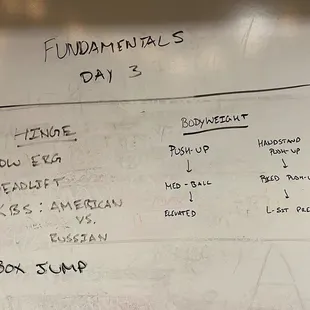 FUNDAMENTALS
DAY 3
HINGE
OW ERG
DEADLIFT
KBS: AMERICAN
VS.
RUSSIAN
BOX JUMP
BODYWEIGHT
PUSH-UP
↓
MED-BALL
↓
ELEVATED
HANDSTAND
PUSH-UP
↓
PUSH-U
↓
L-SIT PRE